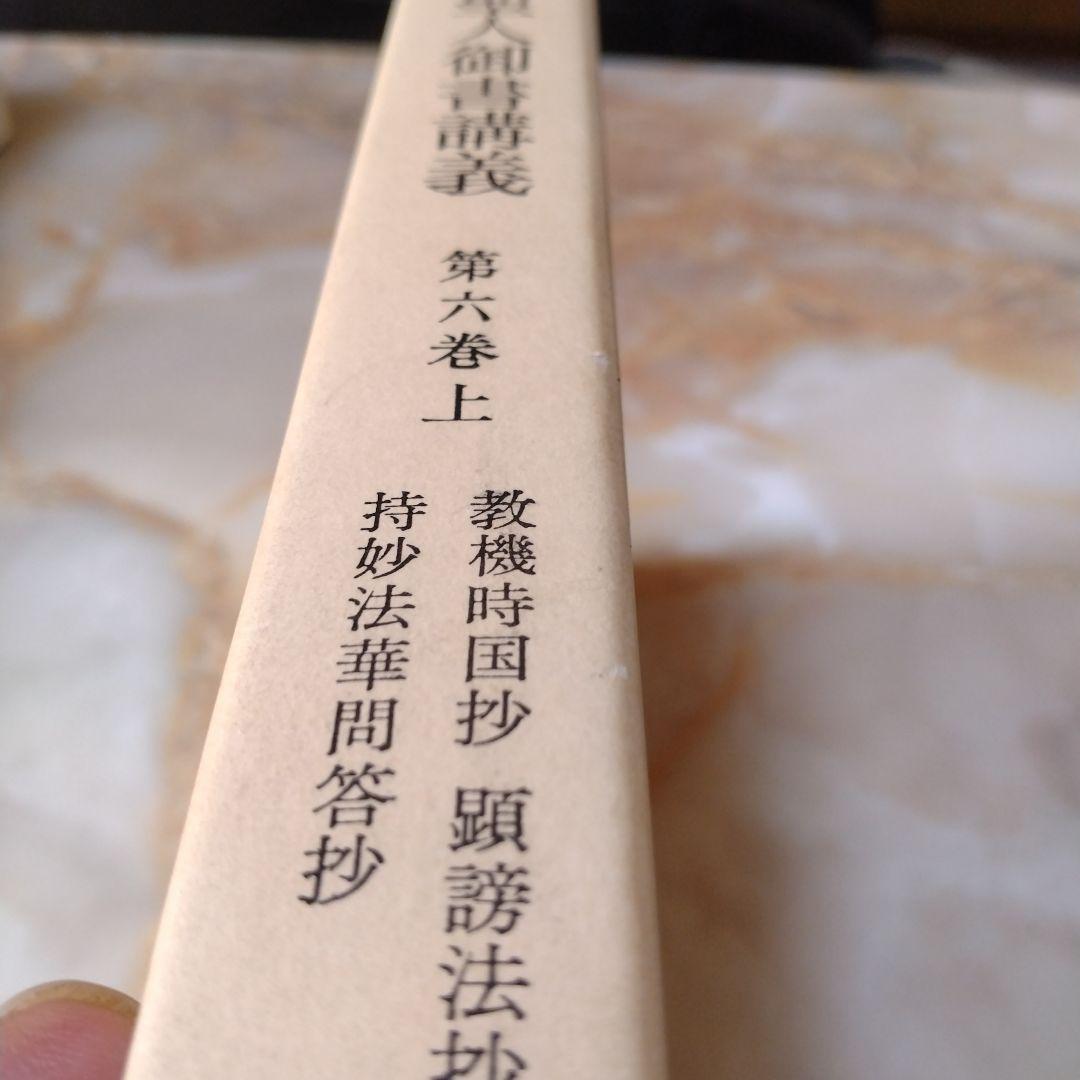 聖人御書講義
第六巻上
教機時国抄 顕謗法抄
持妙法華問答抄